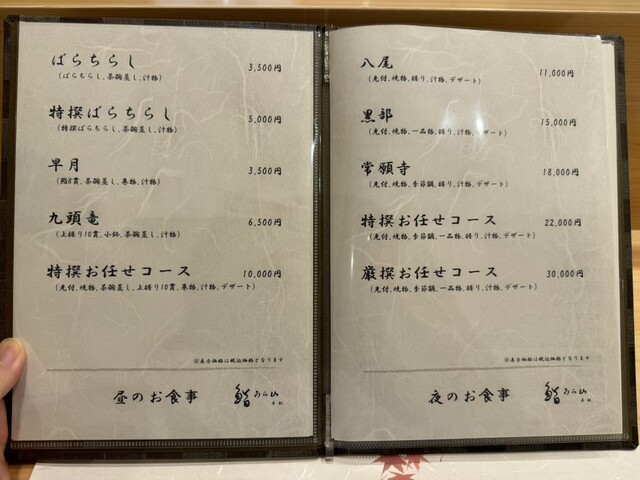 ばらちらし 3,500円
(ばらちらし、茶碗蒸し、汁物)
特撰ばらちらし 5,000円
(特撰ばらちらし、茶碗蒸し、汁物)
早月 3,500円
(鮨8貫、茶碗蒸し、巻物、汁物)
九頭竜 6,500円
(上握り10貫、小鉢、茶碗蒸し、汁物)
特撰お任せコース 10,000円
(先付、焼物、茶碗蒸し、上握り10貫、巻物、汁物、デザート)
※表示価格は税込価格となります
昼のお食事
鮨 あら山
八尾 11,000円
(先付、焼物、握り、汁物、デザート)
黒部 15,000円
(先付、焼物、一品物、握り、汁物、デザート)
常願寺 18,000円
(先付、焼物、季節鍋、握り、汁物、デザート)
特撰お任せコース 22,000円
(先付、焼物、季節鍋、一品物、握り、汁物、デザート)
厳撰お任せコース 30,000円
(先付、焼物、季節鍋、一品物、握り、汁物、デザート)
※表示価格は税込価格となります
夜のお食事
鮨 あら山